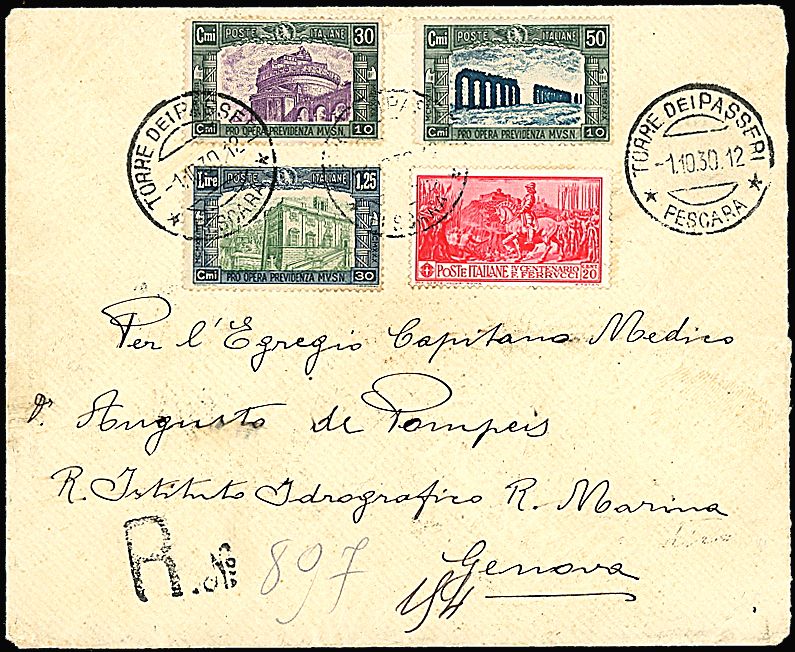 Cmi POSTE ITALIANE 30
Cmi PRO OPERA PREVIDENZA M.V.S.N. 10
Cmi POSTE ITALIANE 50
Cmi PRO OPERA PREVIDENZA M.V.S.N. 10
TORRE DEI PASSERI
-1.10.30.12
PESCARA
TORRE DEI PASSERI
-1.10.30.12
★ PESCARA ★
Lire POSTE ITALIANE 1.25
Cmi PRO OPERA PREVIDENZA M.V.S.N. 30
POSTE ITALIANE IV CENTENARIO F. FERRUCCI CENT. 20
Per l'Egregio Capitano Medico
Dr Augusto de Pompeis
R. Istituto Idrografico R. Marina
Genova
R. No 897